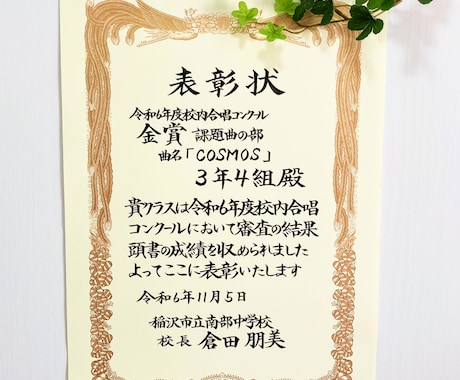 表彰状
令和6年度校内合唱コンクール
金賞 課題曲の部
曲名「COSMOS」
3年4組殿
貴クラスは令和6年度校内合唱
コンクールにおいて審査の結果
頭書の成績を収められました
よってここに表彰いたします
令和6年11月5日
稲沢市立南部中学校
校長 倉田朋美